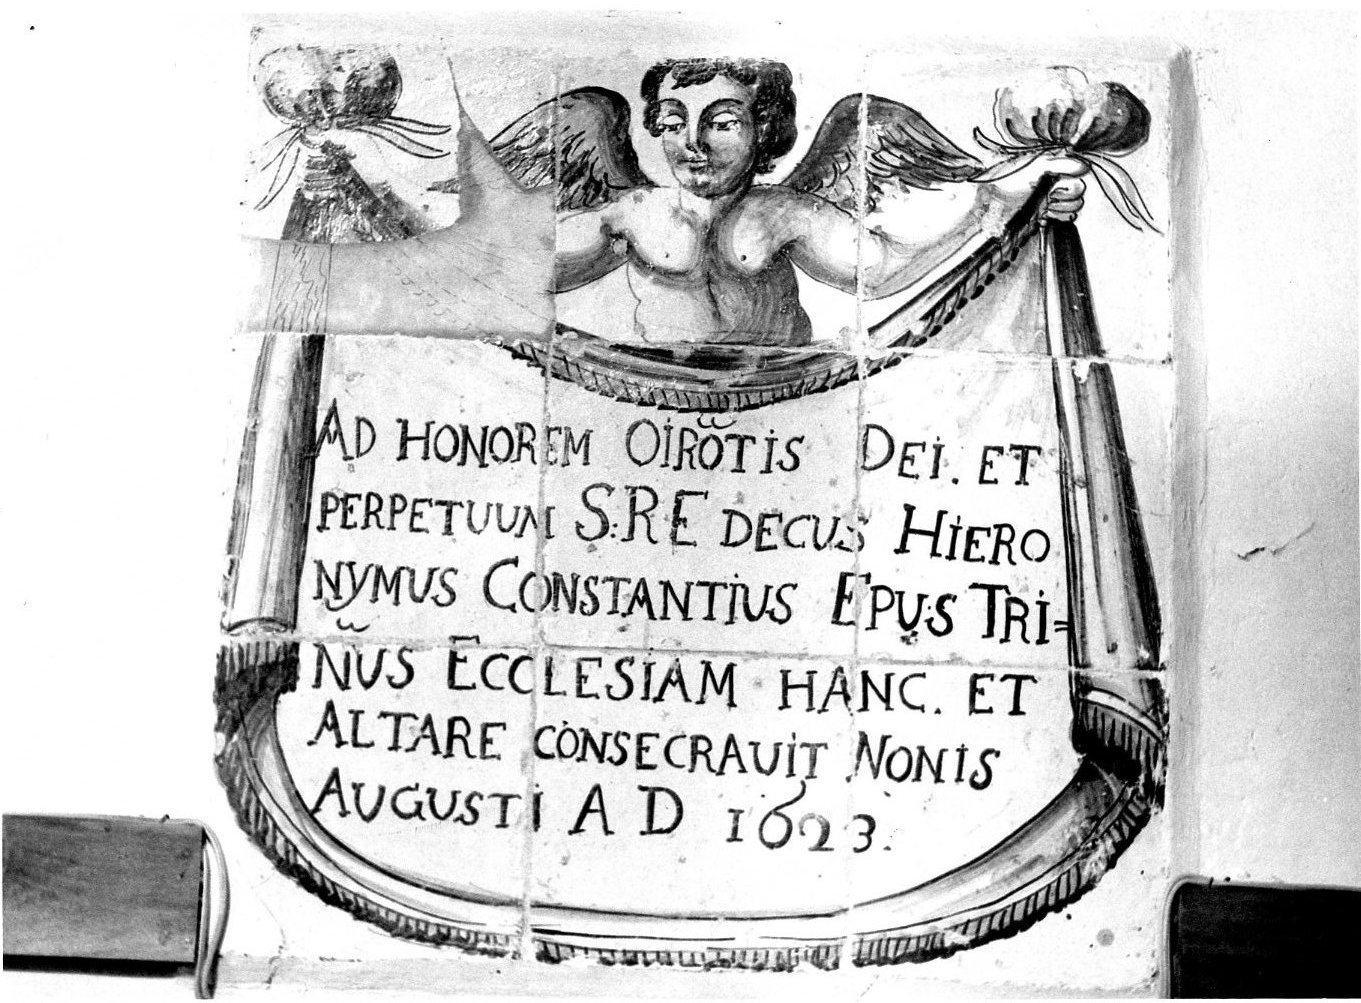 AD HONOREM OIRŌTIS DEI. ET
PERPETUUM S.R.E DECUS HIERO
NYMUS CONSTANTIUS EPUS TRI=
NUS ECCLESIAM HANC. ET
ALTARE CONSECRAUIT NONIS
AUGUSTI A D 1623.